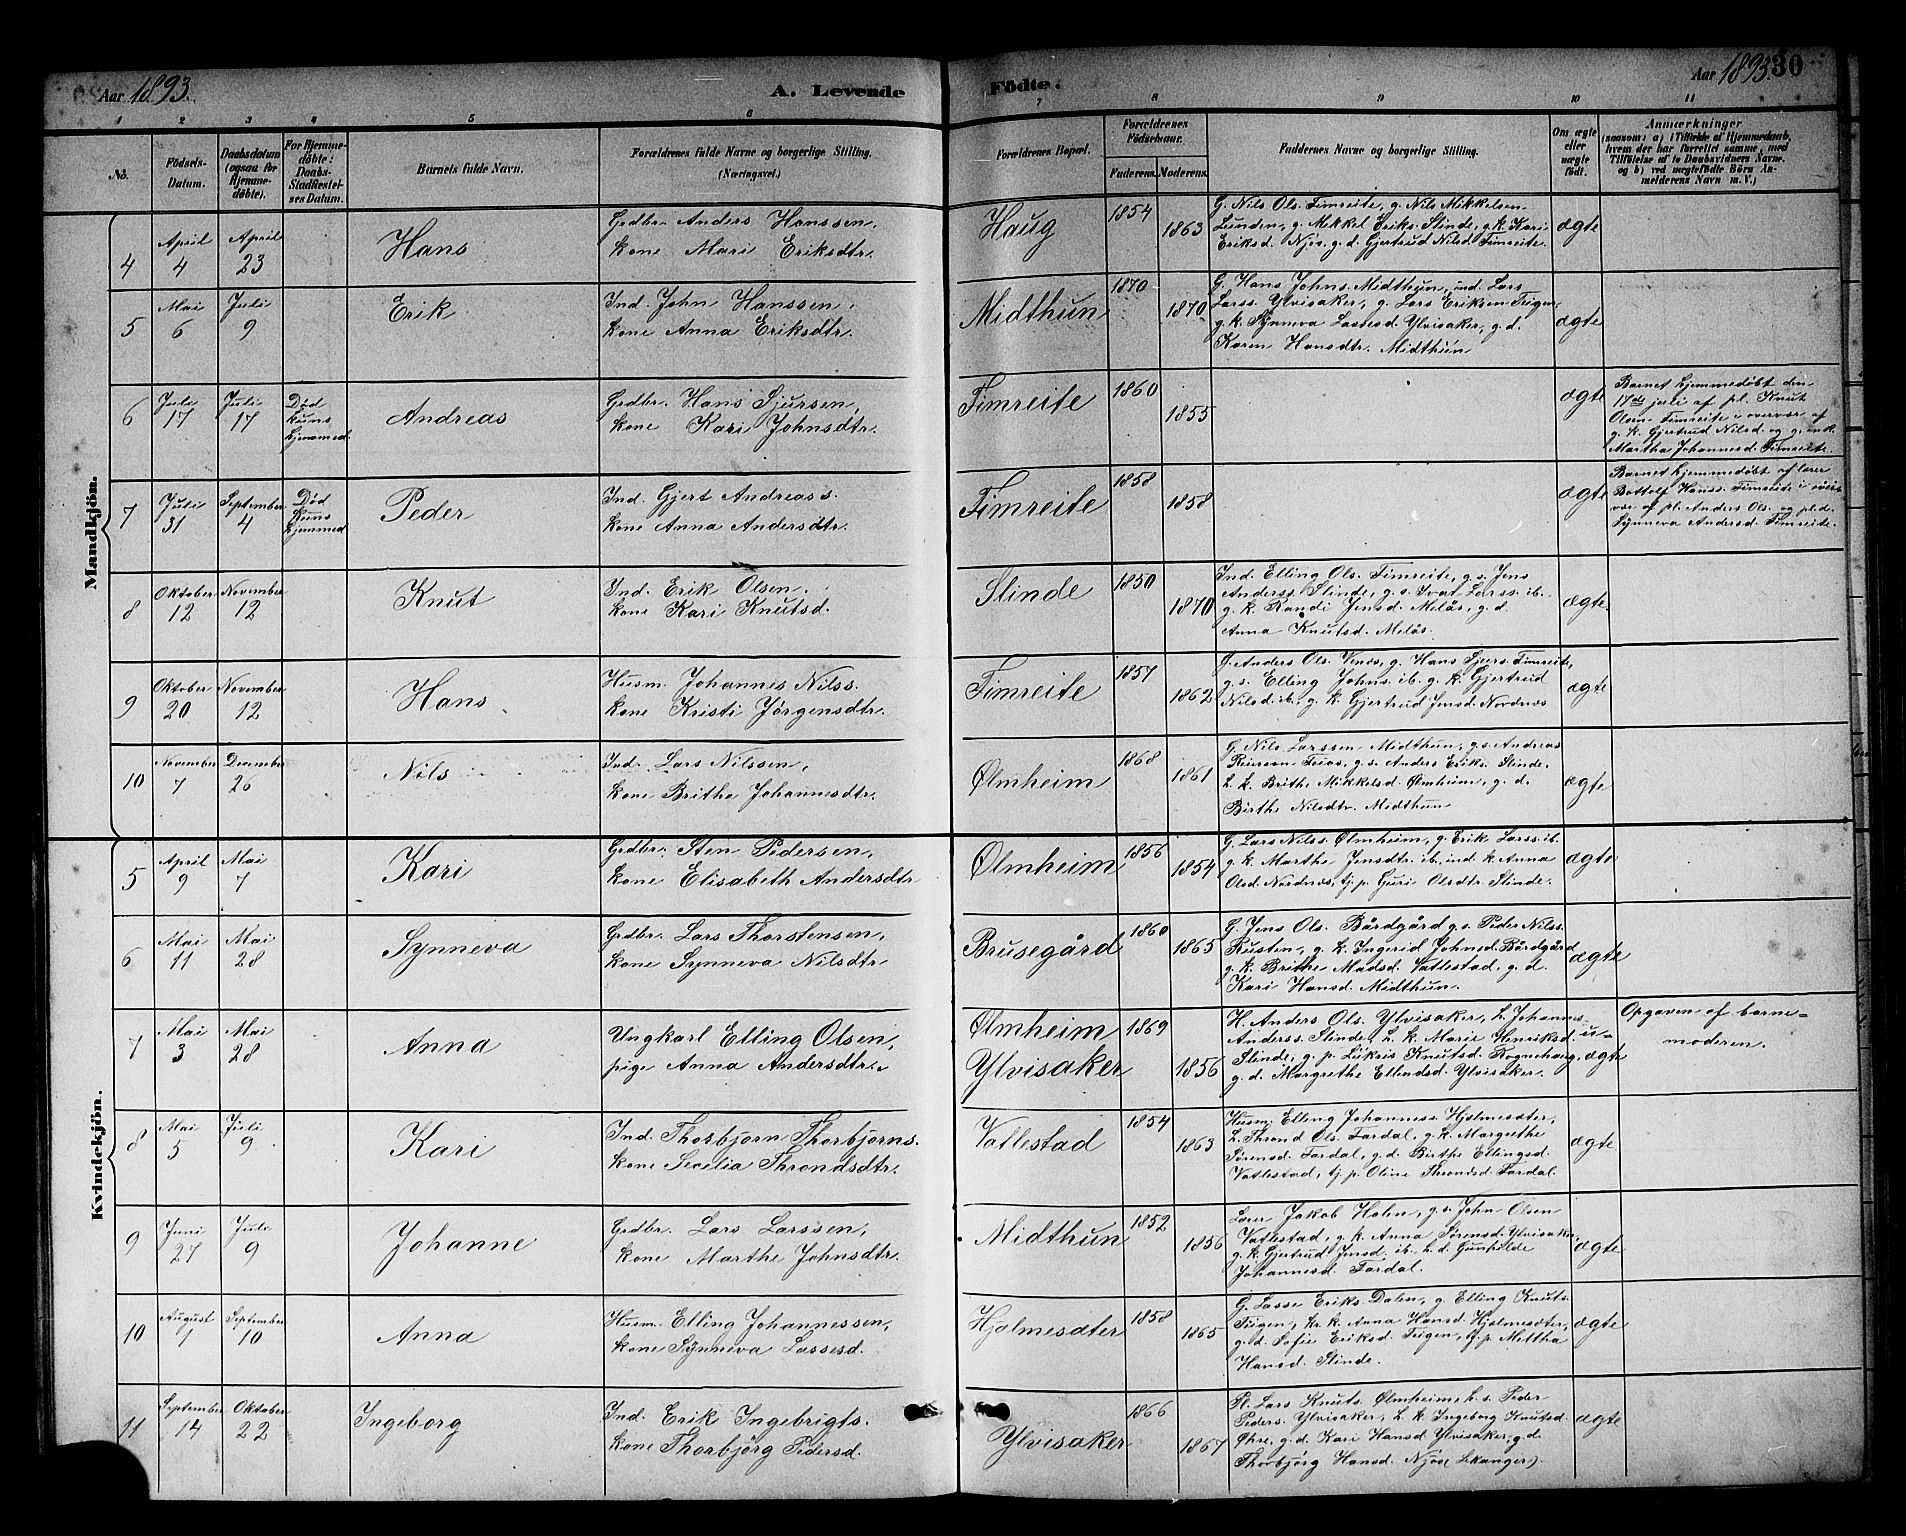 Aar 1893. A. Levende Födte. Aar 1893. 30
1 2 3 4 5 6 7 8 9 10 11
No. Födsels-Datum. Daabsdatum (ogsaa for Hjemmedöbte). For Hjemmedöbte: Daabs-Stadfæstelses Datum. Barnets fulde Navn. Forældrenes fulde Navne og borgerlige Stilling. (Næringsvei.) Forældrenes Bopæl. Forældrenes Födselsaar. Faderens. Moderens. Faddernes Navne og borgerlige Stilling. Om ægte eller uægte födt. Anmærkninger (saasom: a) i Tilfælde af Hjemmedaab, hvem der har forrettet samme, med Tilföielse af to Daabsvidners Navne. og b) ved uægtefödte Börn Anmelderens Navn m. V.)
Mandkjön.
4 April 4 April 23 Hans
Grdbr. Anders Hanssen,
kone Mari Eriksdtr.
Haug 1854 1863
G. Nils Ols. Fimreite, g. Nils Mikkelsen
Lunden, g. Mikkel Eriks. Slinde, g. k. Kari
Eriksd. Njøs, g. d. Gjertrud Nilsd. Fimreite.
ægte
5 Mai 6 Juli 9 Erik
Ind. John Hanssen,
kone Anna Eriksdtr.
Midthun 1870 1870
G. Hans Johns. Midthun, ind. Lars
Larss. Ylvisaker, g. Lars Eriksen Teigen,
g. k. Synneva Lassesd. Ylvisaker, g. d.
Karen Hansdtr. Midthun
ægte
6 Juli 17 Juli 17 Död kuns hjemmed. Andreas
Grdbr. Hans Sjursen,
kone Kari Johnsdtr.
Fimreite 1860 1855
ægte
Barnet hjemmedøbt den
17de juli af pl. Knut
Olsen Fimreite i overvær af
g. k. Gjertrud Nilsd. og g. enk.
Martha Johannesd. Fimreite.
7 Juli 31 September 4 Död kuns hjemmed Peder
Ind. Gjert Andreas s.
kone Anna Andersdtr.
Fimreite 1858 1858
ægte
Barnet hjemmedøbt af lærer
Bottolf Hanss. Fimreite i overvær
af pl. Anders Ols. og pl.d.
Synneva Andersd. Fimreite.
8 Oktober 12 November 12 Knut
Ind. Erik Olsen,
kone Kari Knutsd.
Slinde 1850 1870
Ind. Elling Ols. Fimreite, g. s. Jens
Anderss. Slinde, g. s. Ivar Larss. ib.
g. k. Randi Jensd. Melås, g. d.
Anna Knutsd. Melås.
ægte
9 Oktober 20 November 12 Hans
Husm. Johannes Nilss.
kone Kristi Jørgensdtr.
Fimreite 1857 1862
G. Anders Ols. Venås, g. Hans Sjurs. Fimreite,
g. s. Elling Johns. ib. g. k. Gjertrud
Nilsd. ib., g. k. Gjertrud Jensd. Nordnæs
ægte
10 November 7 December 26 Nils
Ind. Lars Nilssen,
kone Brithe Johannesdtr.
Ølmheim 1868 1861
G. Nils Larssen Midthun, g. s. Andreas
g. s. Anders Eriks. Slinde,
h. k. Brithe Mikkelsd. Ølmheim, g. d.
Birthe Nilsdtr. Midthun
ægte
Kvindekjön.
5 April 9 Mai 7 Kari
Grdbr. Sten Pedersen,
kone Elisabeth Andersdtr
Ølmheim 1856 1854
G. Lars Nils. Ølmheim, g. Erik Larss. ib.
g. k. Marthe Jensdtr. ib., ind. k. Anna
Olsd. Nordnæs, tj. p. Guri Olsdtr. Slinde.
ægte
6 Mai 11 Mai 28 Synneva
Grdbr. Lars Thorstensen,
kone Synneva Nilsdtr
Brusegård 1860 1865
G. Jens Ols. Bårdgård g. s. Peder Nilss.
Rusten, g. k. Ingerid Johnsd. Bårdgård
g. k. Brithe Madsd. Vatlestad, g. d.
Kari Hansd. Midthun.
ægte
7 Mai 3 Mai 28 Anna
Ungkarl Elling Olsen,
pige Anna Andersdtr.
Ølmheim Ylvisaker 1869 1856
H. Anders Ols. Ylvisaker, h. Johannes
Anderss. Slinde, h. k. Marie Henriksd.
Slinde, g. p. Lükris Knutsd. Rognehaug,
g. d. Margrethe Ellendsd. Ylvisaker.
u-ægte
Opgaven af barne-
moderen.
8 Mai 5 Juli 9 Kari
Ind. Thorbjørn Thorbjørns.
kone Secelia Throndsdtr.
Vatlestad 1854 1863
Husm. Elling Johanness. Hjelmesæter,
h. Thrond Ols. Fardal, g. k. Margrethe
Sørensd. Fardal, g. d. Birthe Ellingsd.
Vatlestad, tj. p. Oline Throndsd. Fardal.
ægte
9 Juni 27 Juli 9 Johanne
Grdbr. Lars Larssen,
kone Marthe Johnsdtr.
Midthun 1852 1856
Lærer Jakob Holen, g. s. John Olsen
Vatlestad, g. k. Anna Sørensd. Ylvisaker,
g. k. Gjertrud Jensd. ib., h. d. Gunhilde
Johannesd. Fardal.
ægte
10 August 1 September 10 Anna
Husm. Elling Johannessen,
kone Synneva Lassesd.
Hjelmesæter 1858 1865
G. Lasse Eriks. Dalen, g. Elling Knuts.
Teigen, k. Anna Hansd. Hjelmesæter,
g. d. Sofie Eriksd. Teigen, tj. p. Mettha
Hansd. Slinde.
ægte
11 September 14 Oktober 22 Ingeborg
Ind. Erik Ingebrigts.
kone Thorbjörg Pedersd.
Ylvisaker 1866 1867
Pl. Lars Knuts. Ølmheim, h. s. Peder
Peders. Ylvisaker, h. k. Ingeborg Knutsd.
Øhre, g. d. Kari Hansd. Ylvisaker, g. d.
Thorbjörg Hansd. Njøs (Lekanger).
ægte